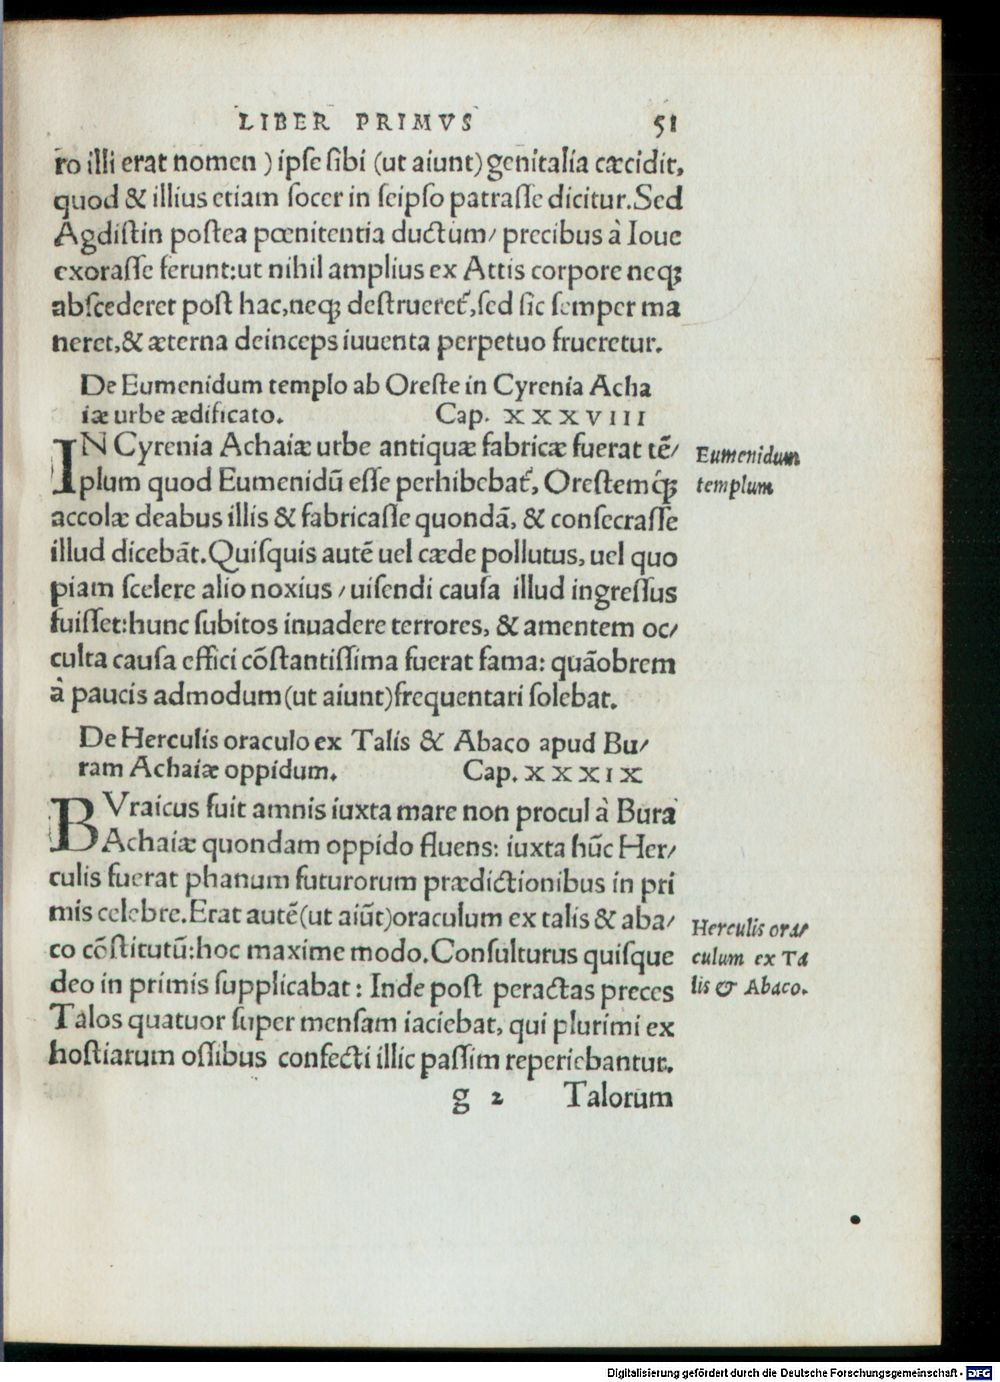 LIBER PRIMVS 51
ro illi erat nomen ) ipse sibi (ut aiunt) genitalia cæcidit,
quod & illius etiam socer in seipso patrasse dicitur. Sed
Agdistin postea pœnitentia ductum/ precibus à Ioue
exorasse ferunt: ut nihil amplius ex Attis corpore neqꝫ
abscederet post hac, neqꝫ destrueret᷒, sed sic semper ma
neret, & æterna deinceps iuuenta perpetuo frueretur.
De Eumenidum templo ab Oreste in Cyrenia Acha
iæ urbe ædificato. Cap. XXXVIII
IN Cyrenia Achaiæ urbe antiquæ fabricæ fuerat tẽ/
plum quod Eumenidũ esse perhibebat᷒, Orestem q́ꝫ
accolæ deabus illis & fabricasse quondã, & consecrasse
illud dicebãt. Quisquis autẽ uel cæde pollutus, uel quo
piam scelere alio noxius / uisendi causa illud ingressus
fuisset: hunc subitos inuadere terrores, & amentem oc/
culta causa effici cõstantissima fuerat fama: quãobrem
à paucis admodum (ut aiunt) frequentari solebat.
Eumenidum
templum
De Herculis oraculo ex Talis & Abaco apud Bu/
ram Achaiæ oppidum. Cap. XXXIX
BVraicus fuit amnis iuxta mare non procul à Bura
Achaiæ quondam oppido fluens: iuxta hũc Her/
culis fuerat phanum futurorum prædictionibus in pri
mis celebre. Erat autẽ (ut aiũt) oraculum ex talis & aba/
co cõstitutũ: hoc maxime modo. Consulturus quisque
deo in primis supplicabat: Inde post peractas preces
Talos quatuor super mensam iaciebat, qui plurimi ex
hostiarum ossibus confecti illic passim reperiebantur.
Herculis ora/
culum ex Ta
lis & Abaco.
g 2 Talorum
Digitalisierung gefördert durch die Deutsche Forschungsgemeinschaft - DFG